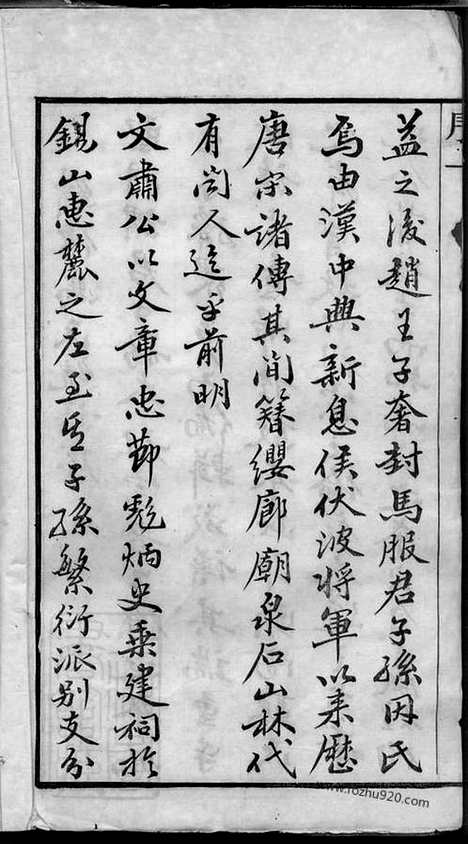 益之後趙王子奢封馬服君子孫因氏
焉由漢中興新息侯伏波將軍以來歷
唐宋諸傳其間簪纓廊廟泉石山林代
有聞人迨乎前明
文肅公以文章忠節彪炳史乘建祠於
錫山惠麓之左至今子孫繁衍派別支分
www.rozhu920.com